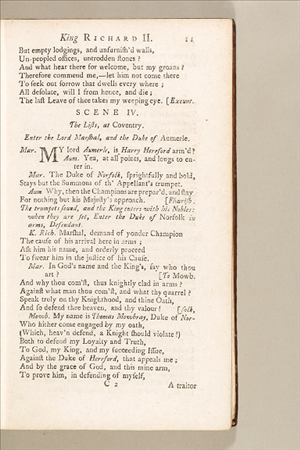 King RICHARD II.
But empty lodgings, and unfurnish'd walls,
Un-peopled offices, untrodden stones?
And what hear there for welcome, but my groans?
Therefore commend me,—let him not come there
To seek out sorrow that dwells every where;
All desolate, will I from hence, and die;
The last Leave of thee takes my weeping eye. [Exeunt.
SCENE IV.
The Lists, at Coventry.
Enter the Lord Marshal, and the Duke of Aumerle.
Mar. MY lord Aumerle, is Harry Hereford arm'd?
Aum. Yea, at all points, and longs to en-
ter in.
Mar. The Duke of Norfolk, sprightfully and bold,
Stays but the Summons of th' Appellant's trumpet.
Aum Why, then the Champions are prepar'd, and stay
For nothing but his Majesty's approach. [Flourish.
The trumpets sound, and the King enters with his Nobles:
when they are set, Enter the Duke of Norfolk in
arms, Defendant.
K. Rich. Marshal, demand of yonder Champion
The cause of his arrival here in arms;
Ask him his name, and orderly proceed
To swear him in the justice of his Cause.
Mar. In God's name and the King's, say who thou
art? [To Mowb.
And why thou com'st, thus knightly clad in arms?
Against what man thou com'st, and what thy quarrel?
Speak truly on thy Knighthood, and thine Oath,
And so defend thee heaven, and thy valour! [folk,
Mowb. My name is Thomas Mowbray, Duke of Nor-
Who hither come engaged by my oath,
(Which, heav'n defend, a Knight should violate!)
Both to defend my Loyalty and Truth,
To God, my King, and my succeeding Issue,
Against the Duke of Hereford, that appeals me;
And by the grace of God, and this mine arm,
To prove him, in defending of myself,
C 2 A traitor